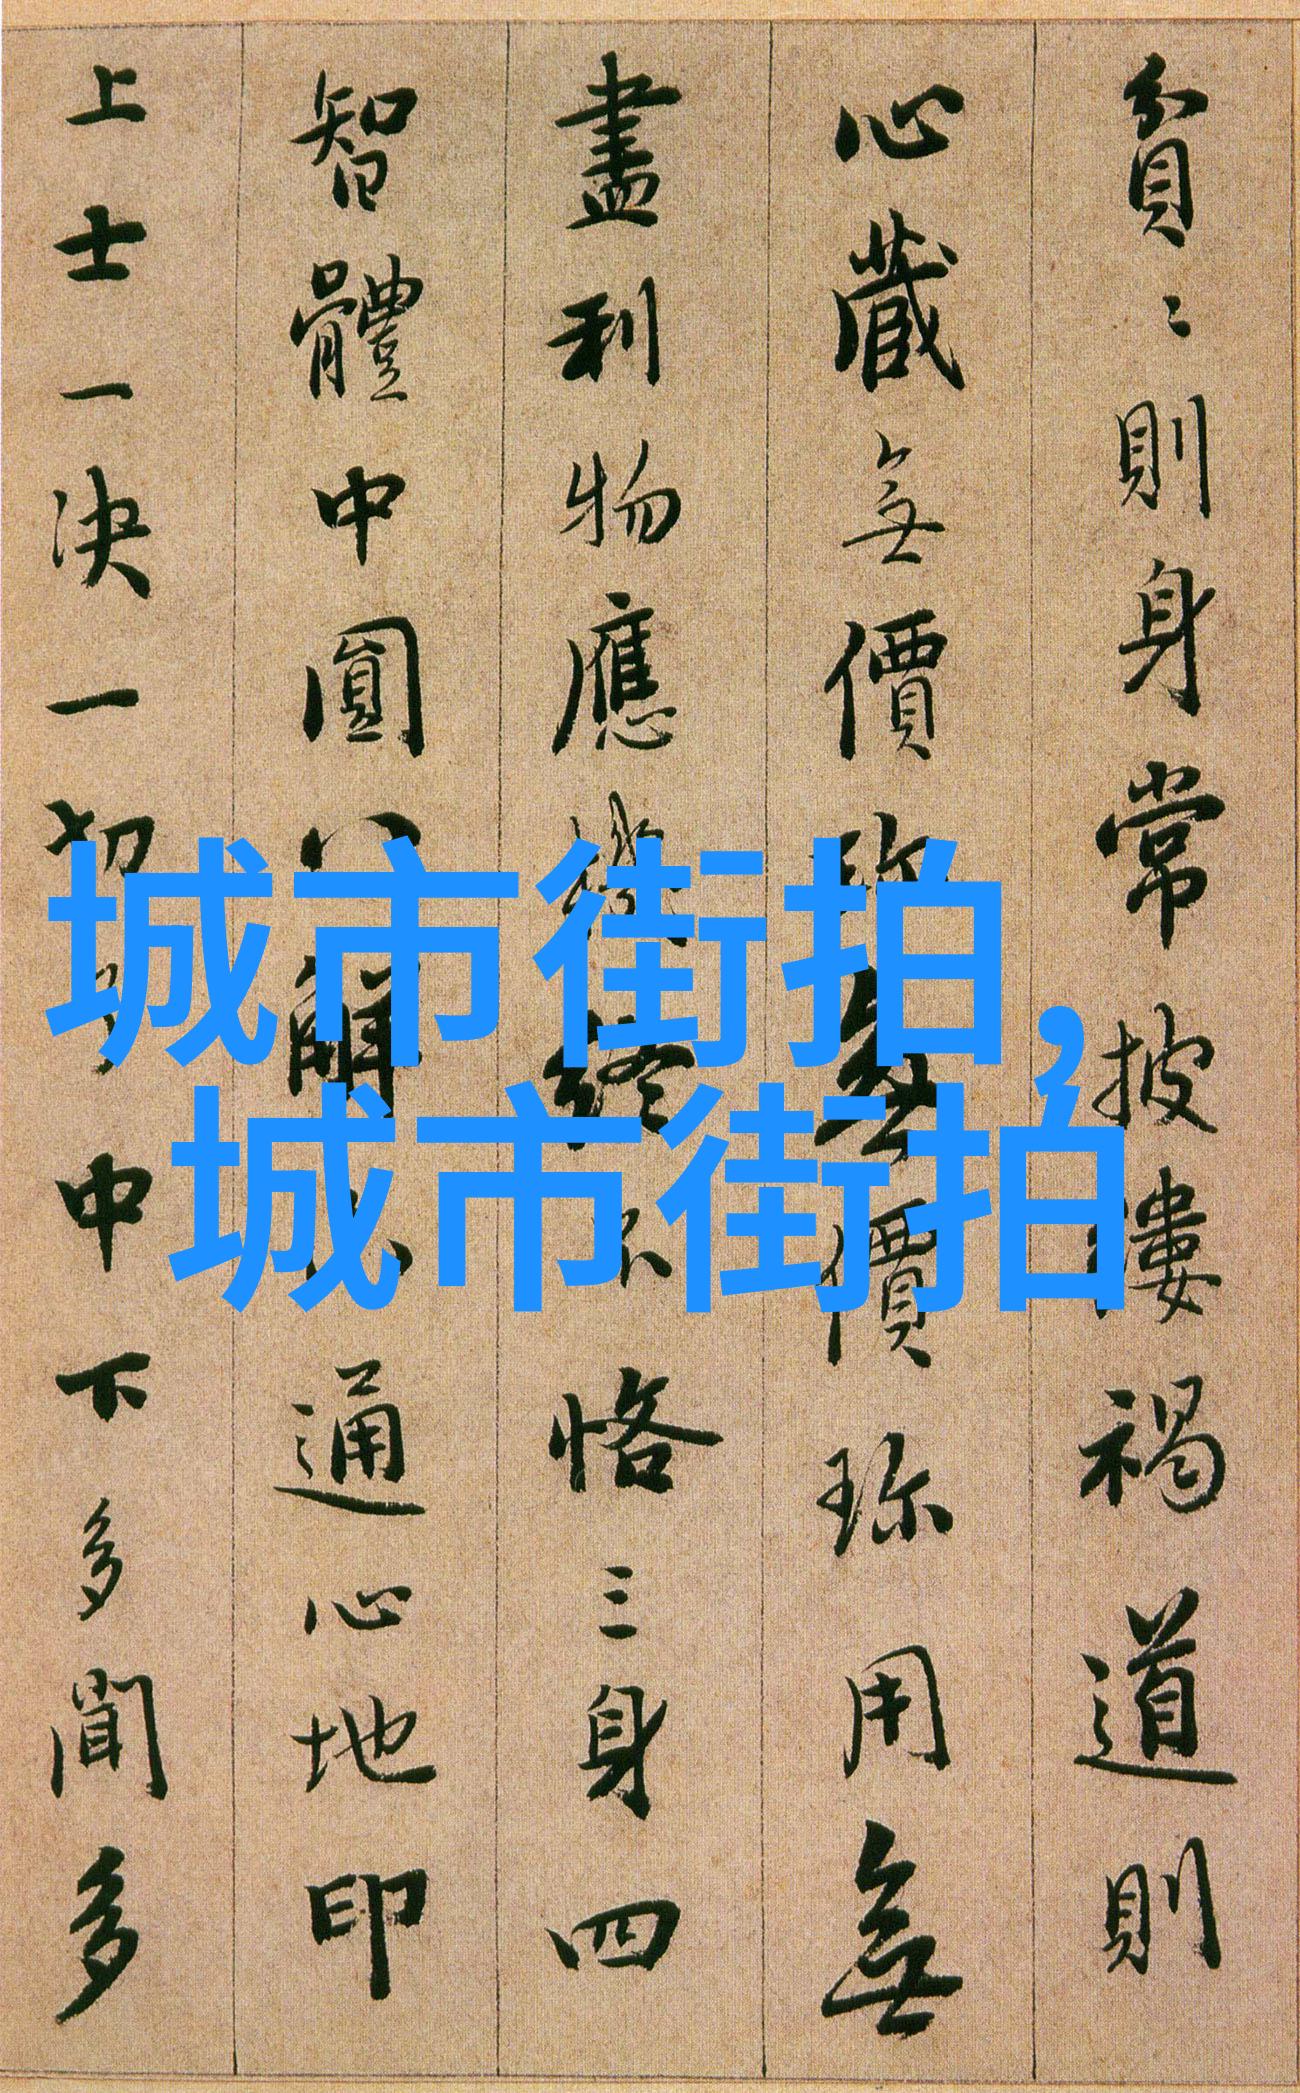 貧〻則身常披縷褐道則
心藏無價珍無價珍用無
盡利物應機終不恪三身四
智體中圓八解六通心地印
上士一決一切了中下多聞多
城市街拍,
城市街拍